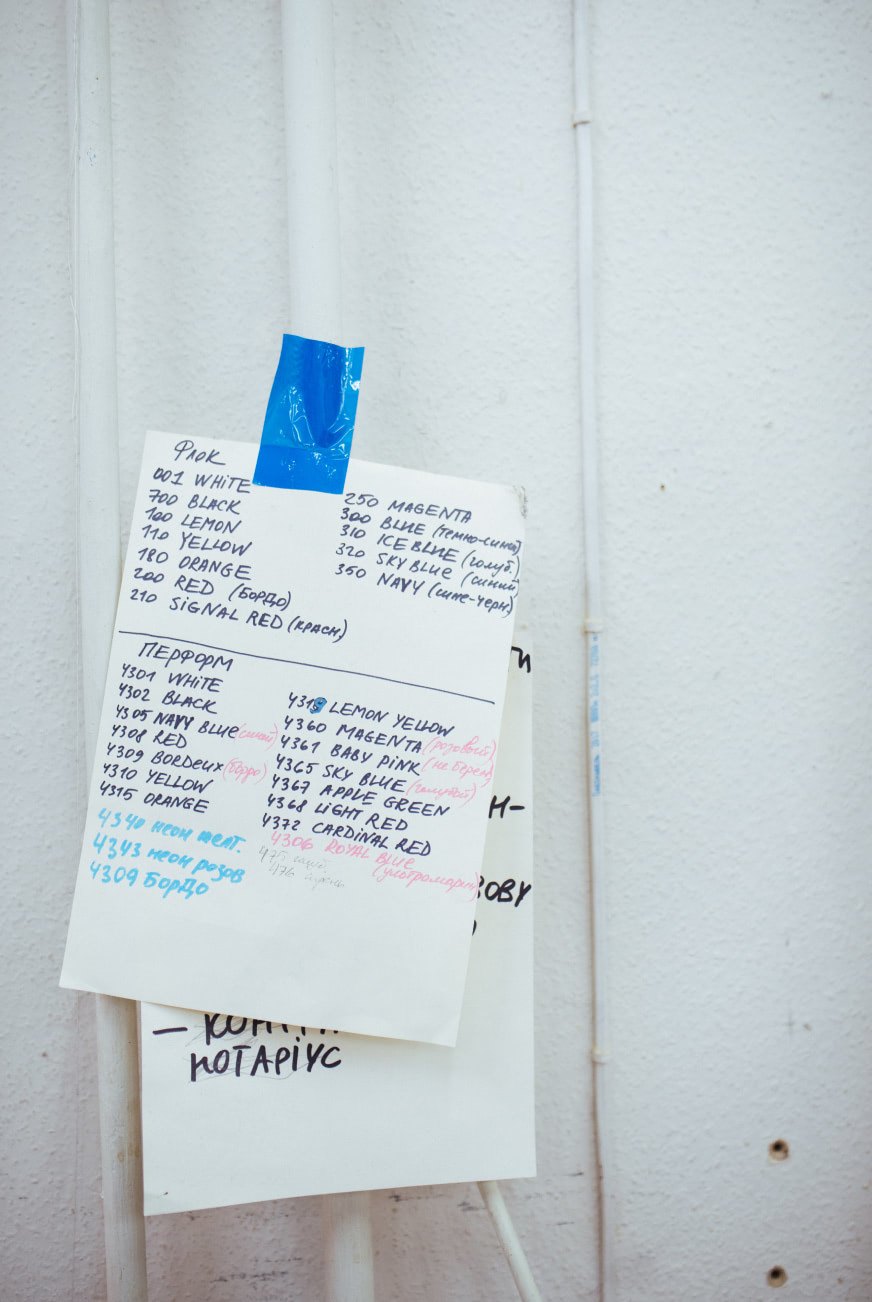 Флок
001 WHITE
700 BLACK
100 LEMON
110 YELLOW
180 ORANGE
200 RED (БОРДО)
210 SIGNAL RED (КРАСН)
250 MAGENTA
300 BLUE (темно-синий)
310 ICE BLUE (голуб)
320 SKY BLUE (синий)
350 NAVY (сине-черн)
ПЕРФОРМ
4301 WHITE
4302 BLACK
4305 NAVY BLUE (синий)
4308 RED
4309 BORDEUX (бордо)
4310 YELLOW
4315 ORANGE
4340 неон желт.
4343 неон розов
4309 БОРДО
LEMON YELLOW
4360 MAGENTA (розовый)
4361 BABY PINK (не берем)
4365 SKY BLUE (голубой)
4367 APPLE GREEN
4368 LIGHT RED
4372 CARDINAL RED
4306 ROYAL BLUE
(ультрамарин)
475
476
ти
Н-
ЗОВУ
НОТАРІУС